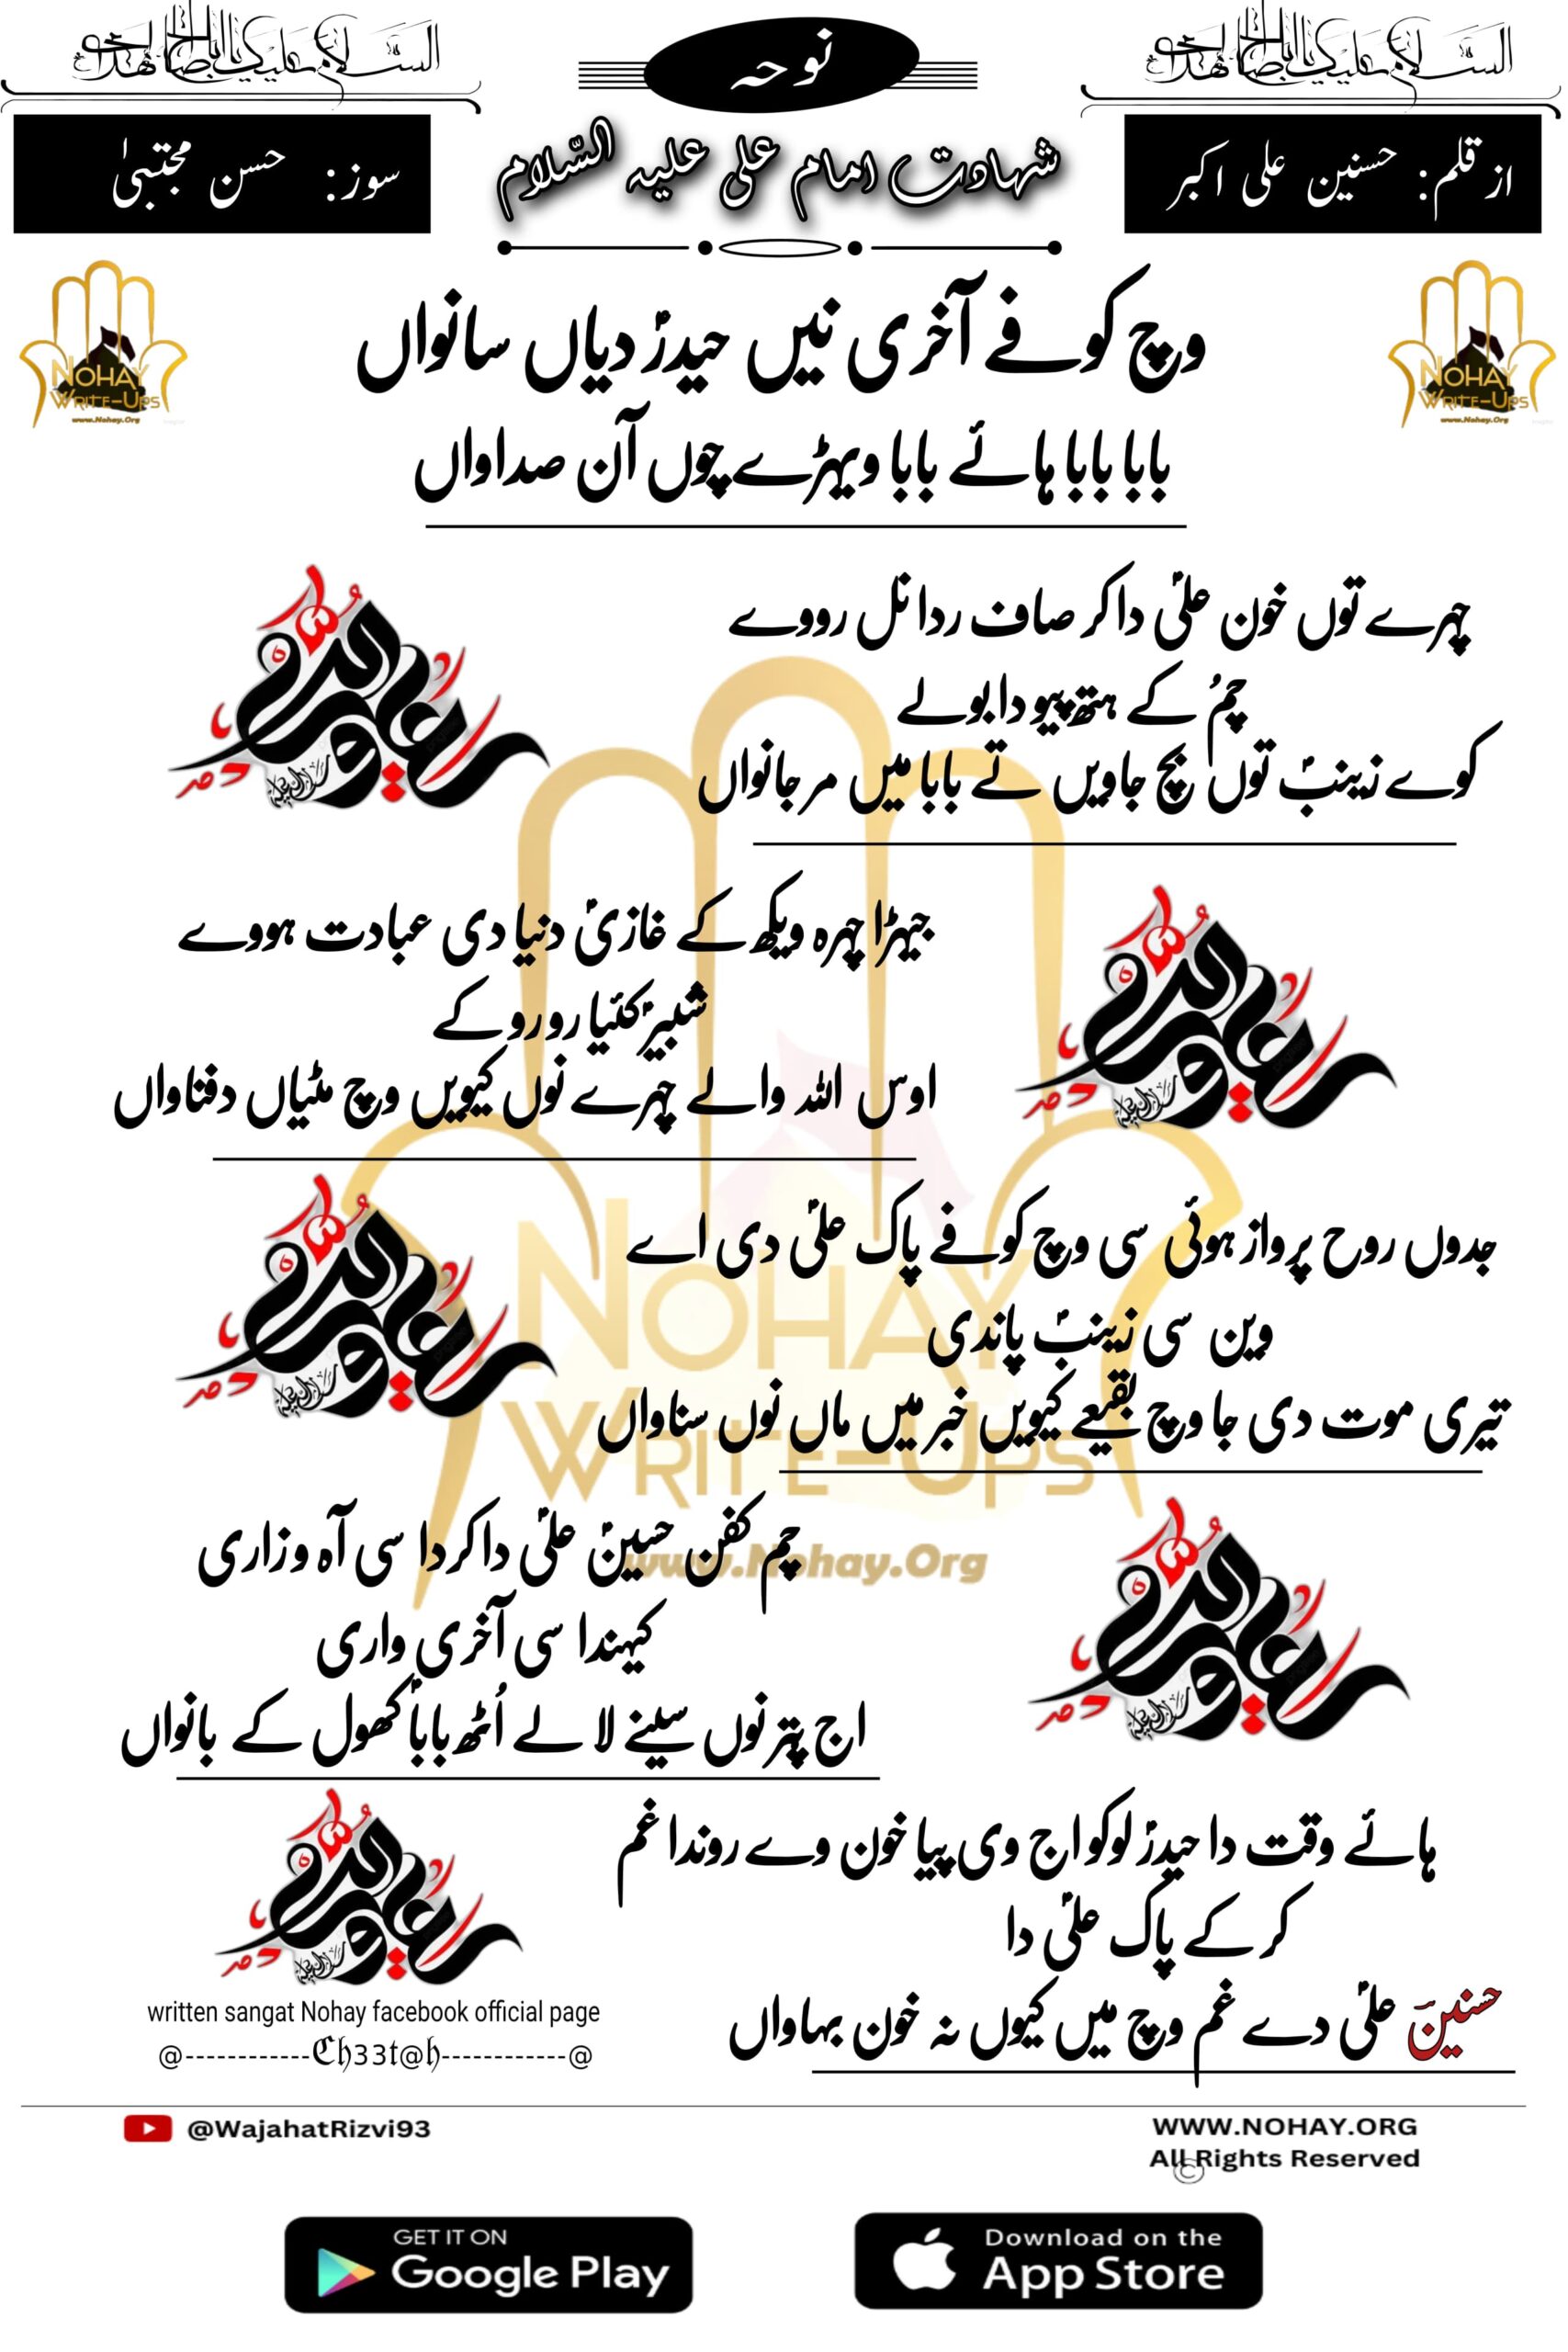 السلام علیک یا اباصالح المهدی
نوحہ
السلام علیک یا اباصالح المهدی
از قلم: حسنین علی اکبر
شہادت امام علی علیہ السّلام
سوز: حسن مجتبیٰ
NOHAY
WRITE-UPS
www.Nohay.Org
NOHAY
WRITE-UPS
www.Nohay.Org
وچ کوفے آخری نیں حیدرؑ دیاں سانواں
بابا بابا ہائے بابا ویہڑے چوں آن صداواں
چہرے توں خون علیؑ دا کر صاف ردا نل رووے
چُم کے ہتھ پیو دا بولے
کوے زینبؑ توں بچ جاویں تے بابا میں مر جانواں
جیہڑا چہرہ ویکھ کے غازیؑ دنیا دی عبادت ہووے
شبیرؑ کئیا رو رو کے
اوس اللہ والے چہرے نوں کیویں وچ مٹیاں دفناواں
جدوں روح پرواز ہوئی سی وچ کوفے پاک علیؑ دی اے
وین سی زینبؑ پاندی
تیری موت دی جا وچ بقیعے کیویں خبر میں ماں نوں سناواں
چم کفن حسینؑ علیؑ دا کردا سی آہ و زاری
کیہندا سی آخری واری
اج پتر نوں سینے لا لے اُٹھ باباؑ کھول کے بانواں
ہائے وقت دا حیدرؑ لوکو اج وی پیا خون وے روندا غم
کر کے پاک علیؑ دا
حسنینؔ علیؑ دے غم وچ میں کیوں نہ خون بہاواں
NOHAY
WRITE-UPS
www.Nohay.Org
written sangat Nohay facebook official page
@------------Ch33t@h------------@
@WajahatRizvi93
WWW.NOHAY.ORG
All Rights Reserved
©
GET IT ON
Google Play
Download on the
App Store